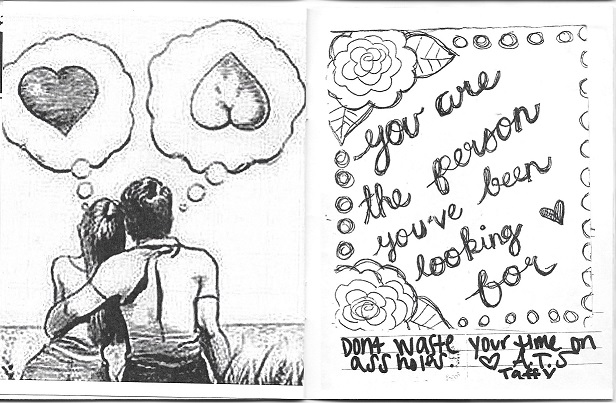 you are
the person
you've been
looking
for
Dont waste your time on
assholes. ♡ A.T.S